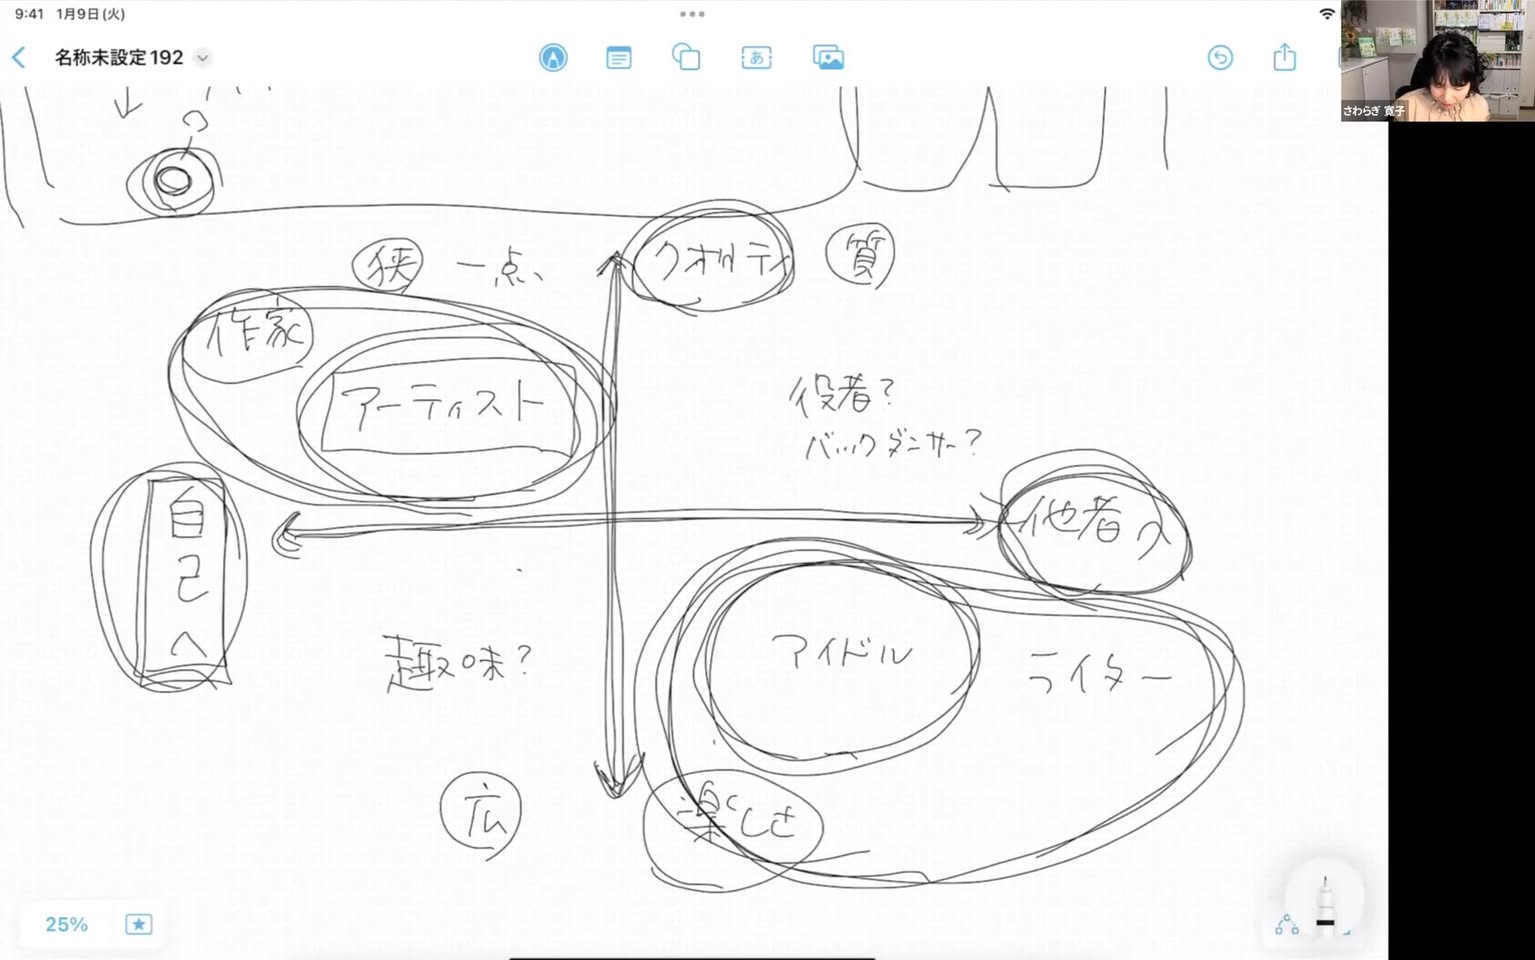 9:41 1月9日(火)
名称未設定192
あ
さわらぎ 寛子
狭 一点、
クオリティ
質
作家
アーティスト
役者?
バックダンサー?
自己へ
他者へ
趣味?
アイドル
ライター
広
楽しさ
25%